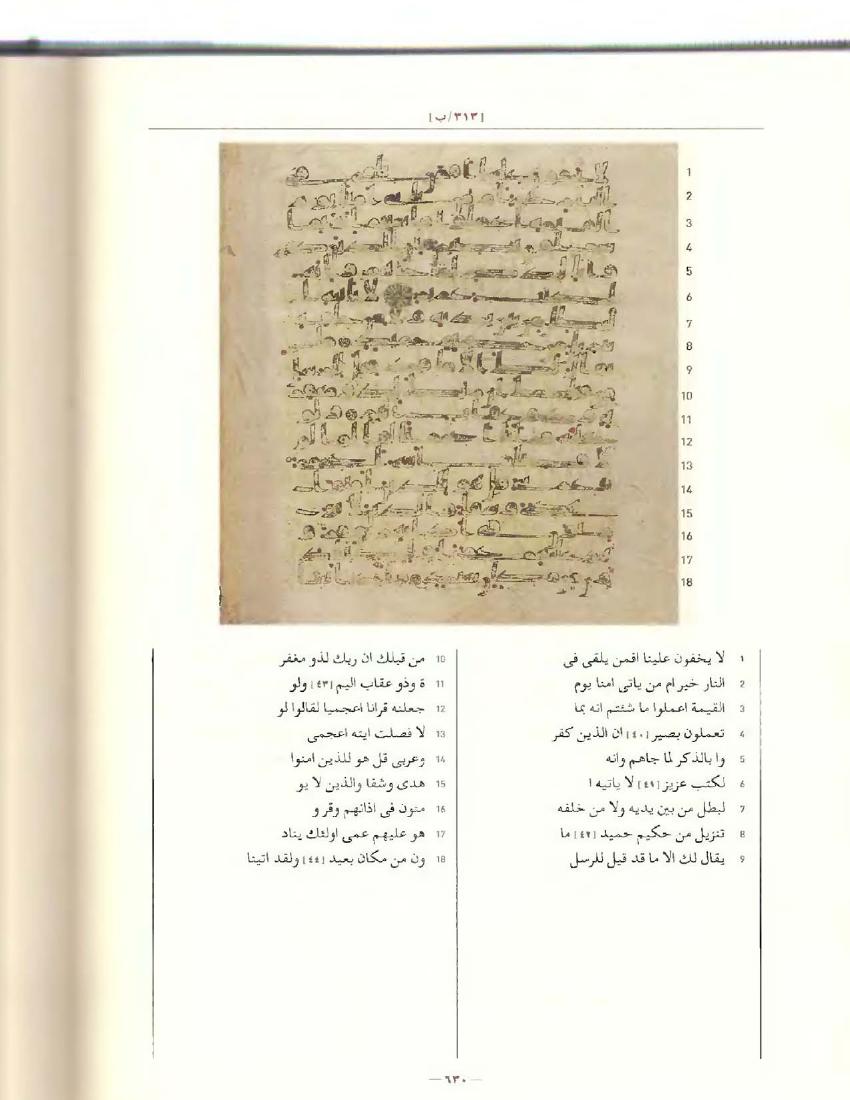 [٣١٣/ب]
1 لا يخفون علينا افمن يلقى فى
2 النار خير ام من ياتى امنا يوم
3 القيمة اعملوا ما شئتم انه بما
4 تعملون بصير [٤٠] ان الذين كفر
5 وا بالذكر لما جاهم وانه
6 لكتب عزيز [٤١] لا ياتيه ا
7 لبطل من بين يديه ولا من خلفه
8 تنزيل من حكيم حميد [٤٢] ما
9 يقال لك الا ما قد قيل للرسل
10 من قبلك ان ربك لذو مغفر
11 ة وذو عقاب اليم [٤٣] ولو
12 جعلنه قرانا اعجميا لقالوا لو
13 لا فصلت ايته اعجمى
14 وعربى قل هو للذين امنوا
15 هدى وشفا والذين لا يو
16 منون فى اذانهم وقر و
17 هو عليهم عمى اولئك يناد
18 ون من مكان بعيد [٤٤] ولقد اتينا
— ٦٣٠ —